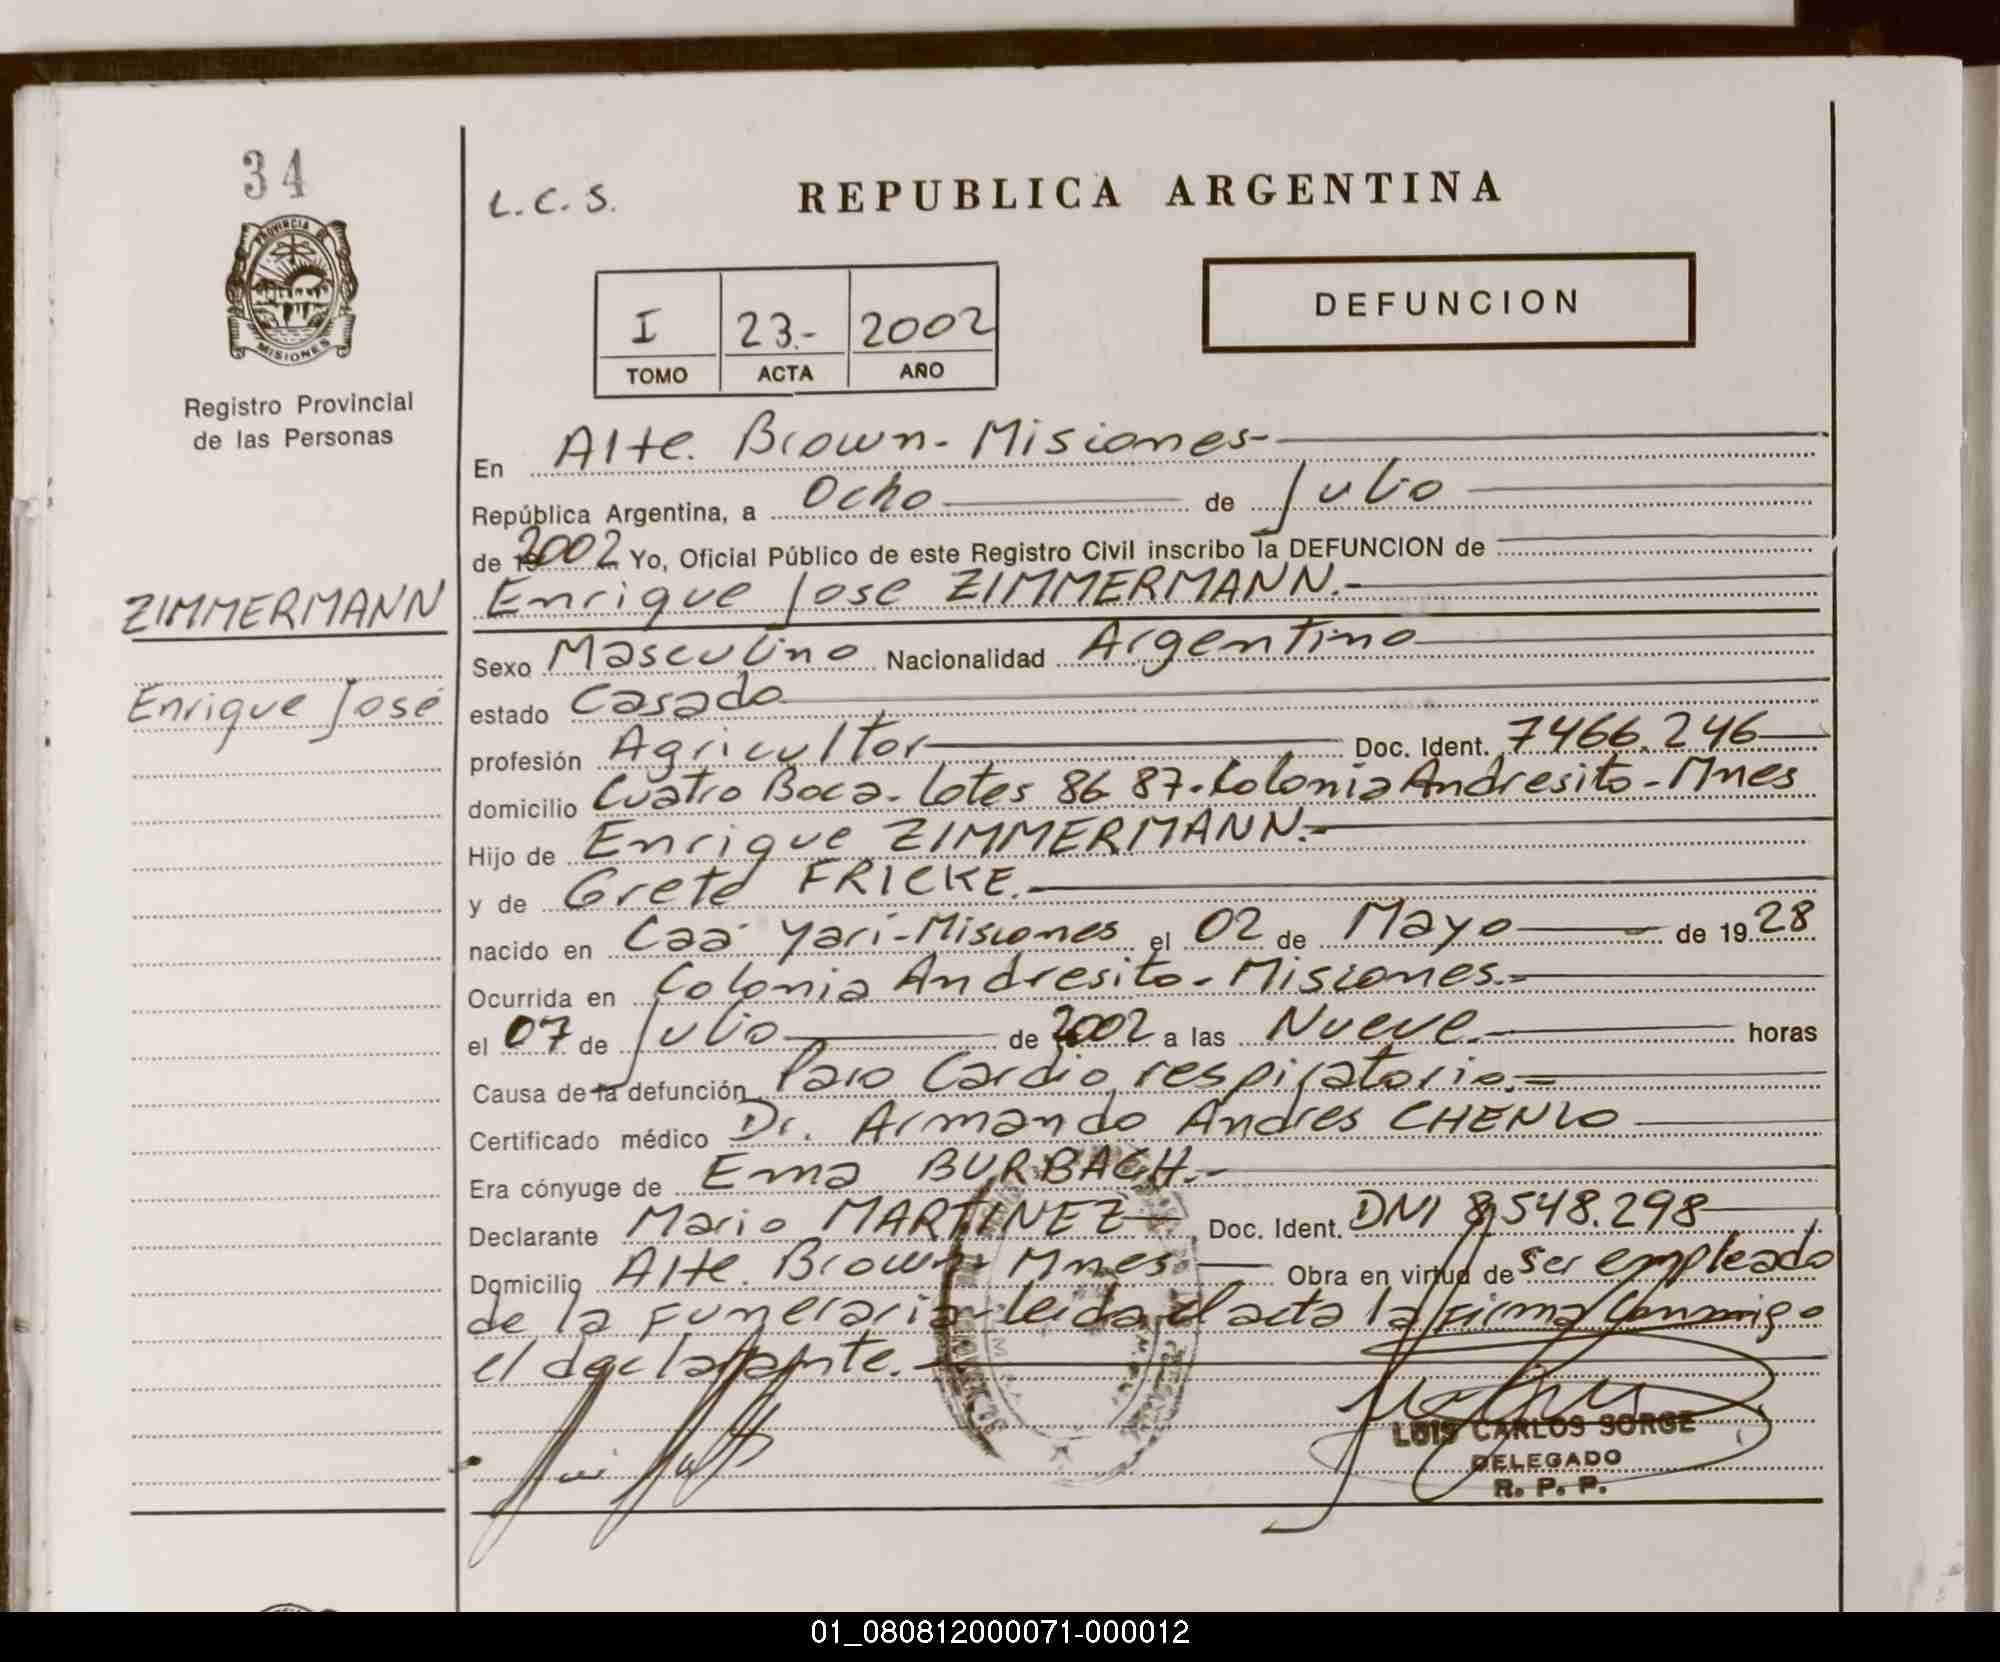 34
L.C.S.
REPUBLICA ARGENTINA
PROVINCIA DE
MISIONES
Registro Provincial
de las Personas
I 23.- 2002
TOMO ACTA AÑO
DEFUNCION
En Alte. Brown - Misiones-
República Argentina, a Ocho de Julio
de 2002 Yo, Oficial Público de este Registro Civil inscribo la DEFUNCION de
ZIMMERMANN
Enrique Jose ZIMMERMANN.-
Sexo Masculino Nacionalidad Argentino
Enrique José
estado Casado
profesión Agricultor Doc. Ident. 7466.246
domicilio Cuatro Boca- Lotes 86 87- Colonia Andresito - Mnes
Hijo de Enrique ZIMMERMANN.-
y de Grete FRICKE.
nacido en Caá Yarí - Misiones el 02 de Mayo de 1928
Ocurrida en Colonia Andresito - Misiones.-
el 07 de Julio de 2002 a las Nueve horas
Causa de la defunción Paro Cardio respiratorio.=
Certificado médico Dr. Armando Andres CHENLO
Era cónyuge de Ema BURBACH.-
Declarante Mario MARTINEZ Doc. Ident. DNI 8.548.298
Domicilio Alte. Brown - Mnes Obra en virtud de ser empleado
de la Funeraria leida el acta la firma Conmigo
el declarante.-
LUIS CARLOS SORGE
DELEGADO
R. P. P.
01_080812000071-000012